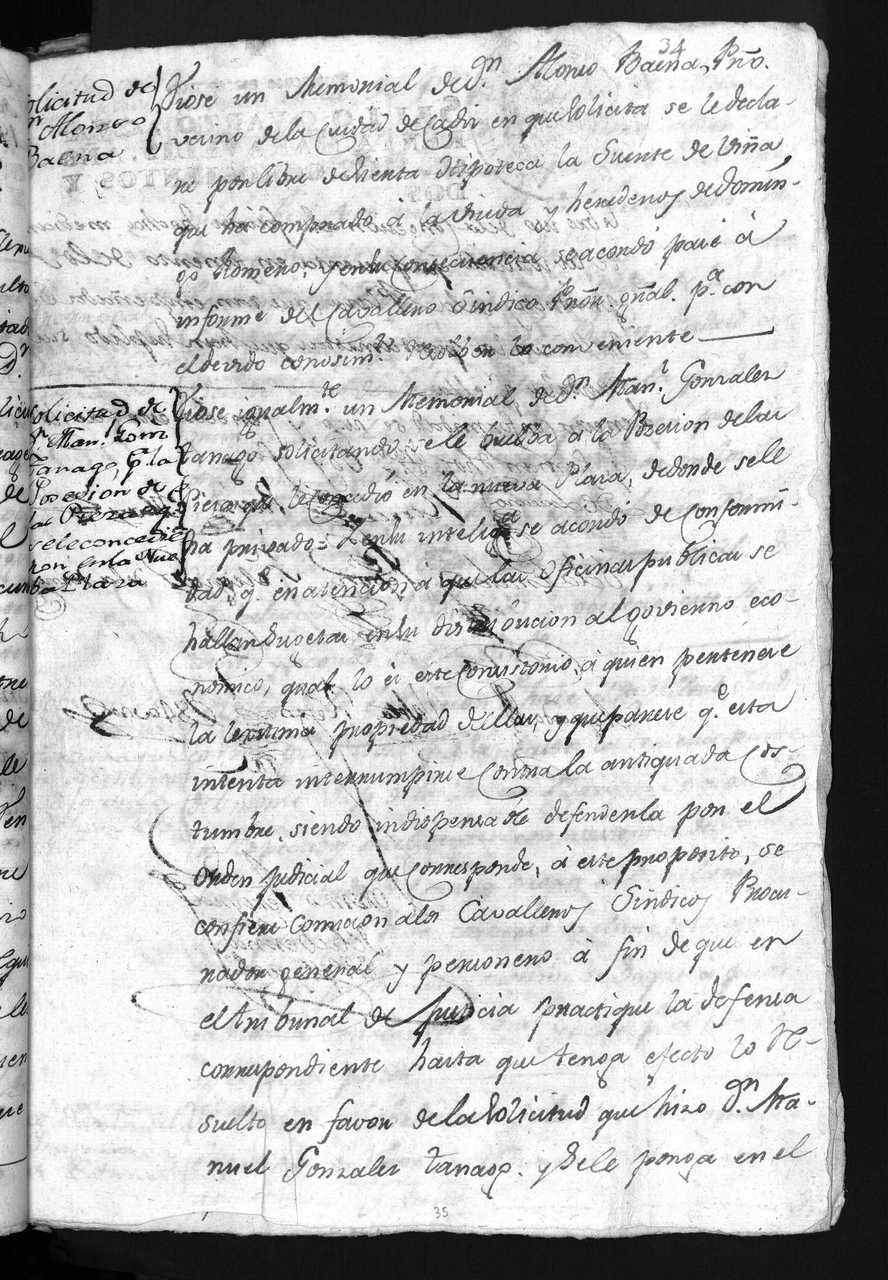 34
Solicitud de
Dn Alonso
Baena
Viose un Memorial de Dn Alonso Baena, Pño.
vecino de la Ciudad de Cadiz en que Solicita se le decla-
re por libre de Renta Ypoteca la Suerte de Viña
que ha comprado à la Viuda y herederos de Domin-
go Romero; y en su consecuencia se acordó pase à
informe del Cavallero Sindico Prör. gñal. pa. con
el devido conosimto. resolver lo conveniente
Solicitud de
Dn Manl. Gonz
Tanago, pa. la
Posesion de
las Piezas q.
se le concedie-
ron en la Nue
ba Plaza
Viose igualmte. un Memorial de Dn Manl. Gonzales
Tanago solicitando se le buelba à la Posesion de las
Piezas que se le concedió en la nueva Plaza, de donde se le
ha privado: Y en su inteliga. se acordó de conformi-
dad q. en atencion à que las oficinas publicas se
hallan sugetas en su distribucion al govierno eco-
nomico, qual lo es este Consistorio, à quien pertenece
la lexitima propiedad de ellas, y que parece qe. esta
intenta interrumpirse contra la antiquada cos-
tumbre, siendo indispensable defenderla por el
orden judicial que corresponde, à este proposito, se
confiere Comision a los Cavalleros Sindicos Procu-
rador general y personero à fin de que en
el tribunal de Justicia practique la defensa
correspondiente hasta que tenga efecto lo Re-
suelto en favor de la Solicitud que hizo Dn. Ma-
nuel Gonzales Tanago. y se le ponga en el
35